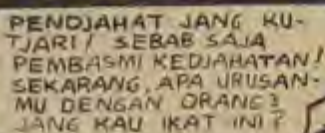 PENDJAHAT JANG KU-
TJARI! SEBAB SAJA
PEMBASMI KEDJAHATAN!
SEKARANG, APA URUSAN-
MU DENGAN ORANG2
JANG KAU IKAT INI?